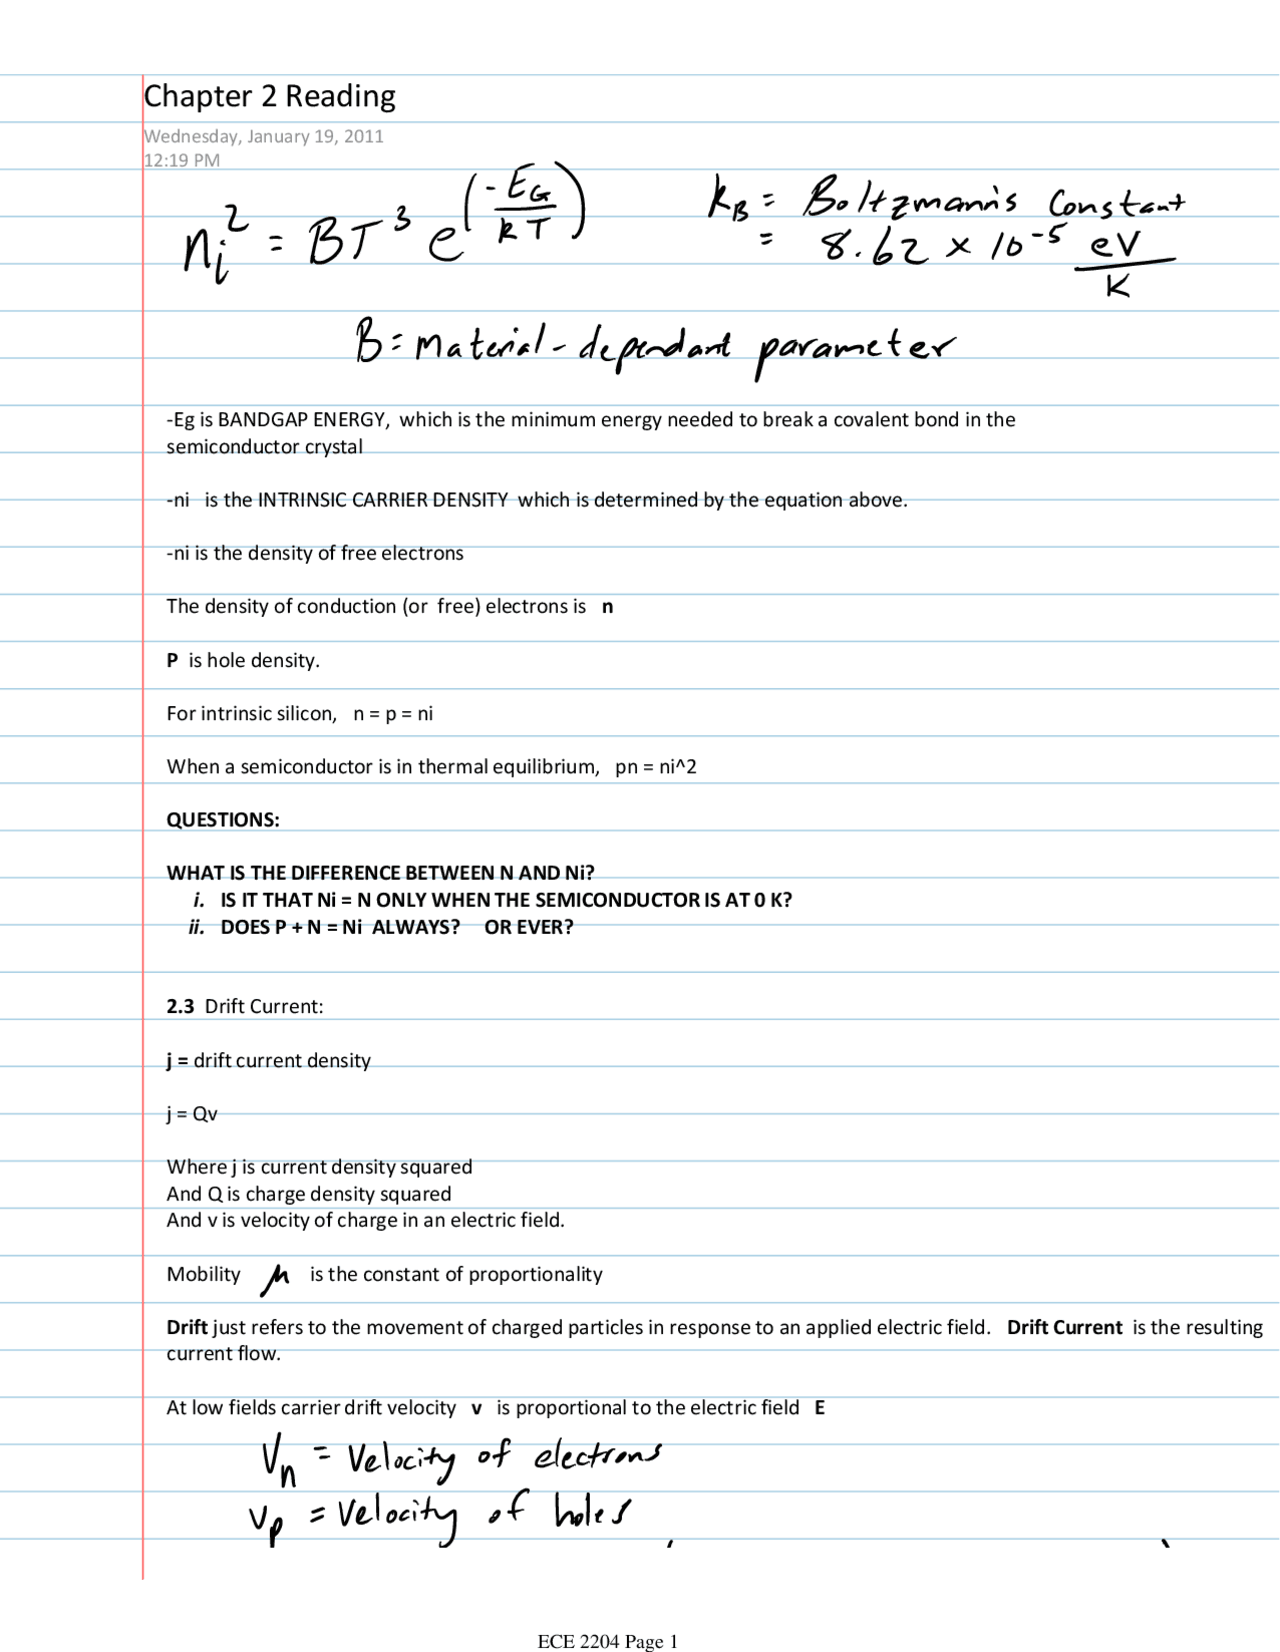 Chapter 2 Reading
Wednesday, January 19, 2011
12:19 PM
nᵢ² = BT³ e^(-E_G/kT)
k_B = Boltzmann's Constant
= 8.62 × 10⁻⁵ eV/K
B = Material-dependant parameter
-Eg is BANDGAP ENERGY, which is the minimum energy needed to break a covalent bond in the
semiconductor crystal
-ni is the INTRINSIC CARRIER DENSITY which is determined by the equation above.
-ni is the density of free electrons
The density of conduction (or free) electrons is n
P is hole density.
For intrinsic silicon, n = p = ni
When a semiconductor is in thermal equilibrium, pn = ni^2
QUESTIONS:
WHAT IS THE DIFFERENCE BETWEEN N AND Ni?
i. IS IT THAT Ni = N ONLY WHEN THE SEMICONDUCTOR IS AT 0 K?
ii. DOES P + N = Ni ALWAYS? OR EVER?
2.3 Drift Current:
j = drift current density
j = Qv
Where j is current density squared
And Q is charge density squared
And v is velocity of charge in an electric field.
Mobility μ is the constant of proportionality
Drift just refers to the movement of charged particles in response to an applied electric field. Drift Current is the resulting
current flow.
At low fields carrier drift velocity v is proportional to the electric field E
Vn = Velocity of electrons
Vp = Velocity of holes
ECE 2204 Page 1